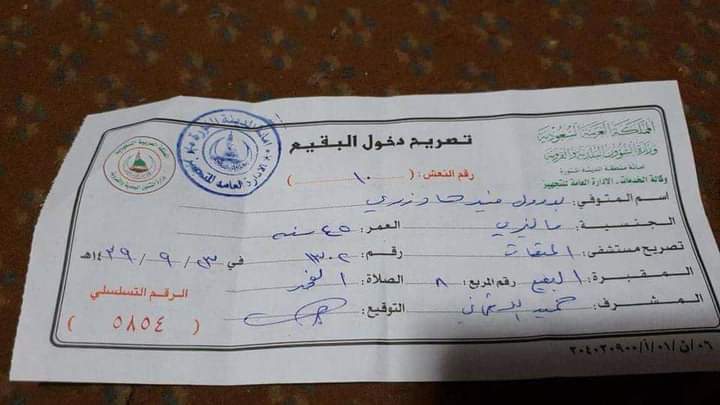 المملكة العربية السعودية
وزارة الشؤون البلدية والقروية
أمانة منطقة المدينة المنورة
وكالة الخدمات - الإدارة العامة للتجهيز
تصريح دخول البقيع
رقم النعش : ( ١٠ )
أمانة المدينة المنورة
الإدارة العامة للتجهيز
اسم المتوفي :
الجنسية : ماليزي العمر : ٤٥ سنه
تصريح مستشفى : رقم : ١٣٠٢ في ٣ / ٩ / ١٤٣٩هـ
المقبرة : البقيع رقم المربع : ٨ الصلاة : الفجر
المشرف : حميد التوقيع :
الرقم التسلسلي
( ٥٨٥٤ )
٢٠٤٠٢٠٩٠٠/أ/٠١/ن/٠٦